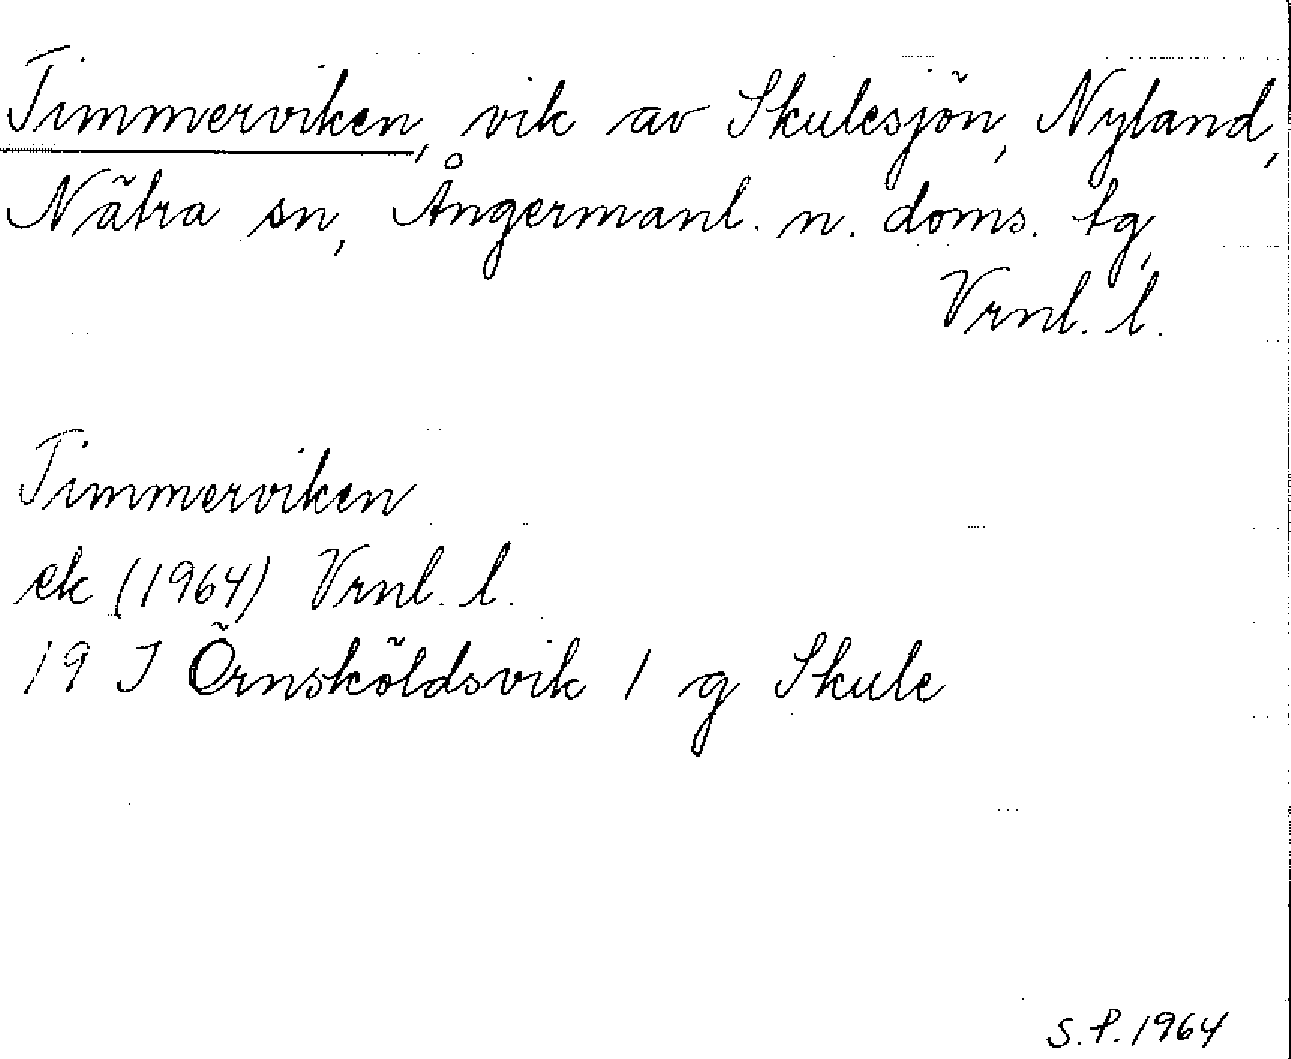 Timmerviken, vik av Skulesjön, Nyland,
Nätra sn, Ångermanl. n. doms. tg,
Vrnl. l.
Timmerviken
ek (1964) Vrnl. l.
19 J Örnsköldsvik 1 g Skule
S.P. 1964